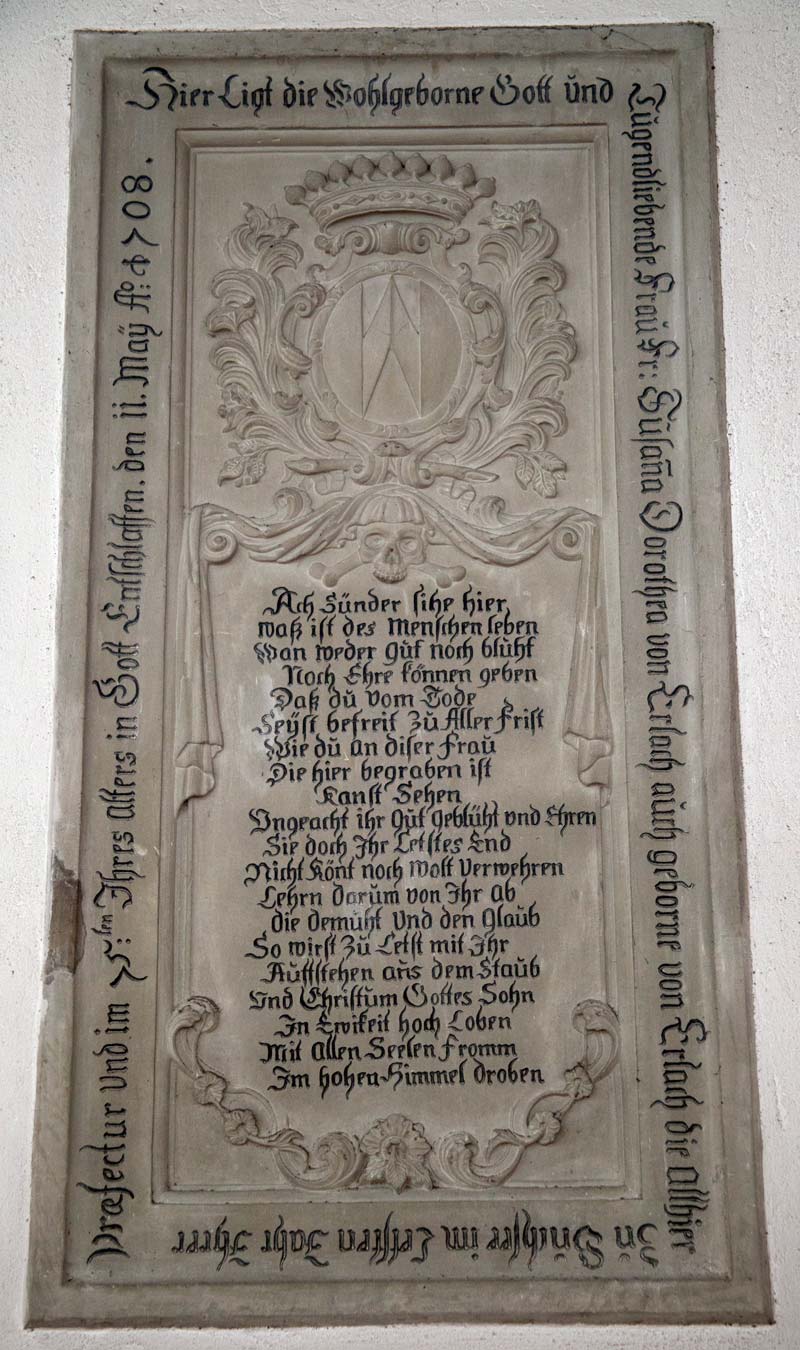 Hier Ligt die Wohlgeborne Gott ŭnd
Tŭgendliebende Fraŭ Fr: Sŭsaña Dorothea von Erlach aŭch geborne von Erlach die Allhier
Zŭ im Letsten Jahr Jhrer
Præfectur Und im 75:sten Jhres alters in Gott Entschlaffen. den 11. Maÿ Aº: 1708.
Ach Sünder sihe hier
waß ist des Menschen leben
Wan weder gŭt noch blŭht
Noch Ehre können geben
Daß dŭ vom Tode
Seÿst befreit Zŭ Aller Frist
Wie dŭ an diser Fraŭ
Die hier begraben ist
Kanst Sehen
Ungeacht ihr Gŭt geblüht vnd Ehren
Sie doch Jhr Letstes End
Nicht Könt noch wolt Verwehren
Lehrn darŭm von Jhr ab
die demŭht Und den glaub
So wirst Zŭ Letst mit Jhr
Aŭffstehen aŭs dem Staŭb
Und Christŭm Gottes Sohn
Jn Ewikeit hoch Loben
Mit Allen Seelen Fromm
Jm hohen Himmel droben